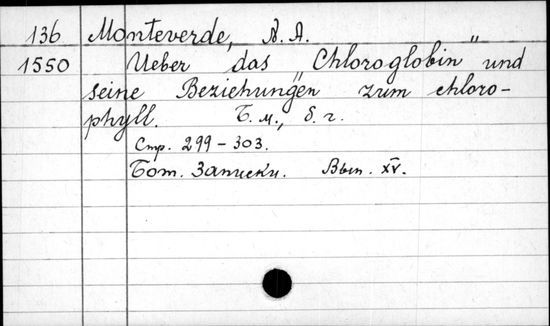 136 Monteverde, N. A.
1550 Ueber das „Chloroglobin" und
seine Beziehungen zum chloro-
phyll. Б. м., б. г.
Стр. 299-303.
Бот. Записки. Вып. XV.